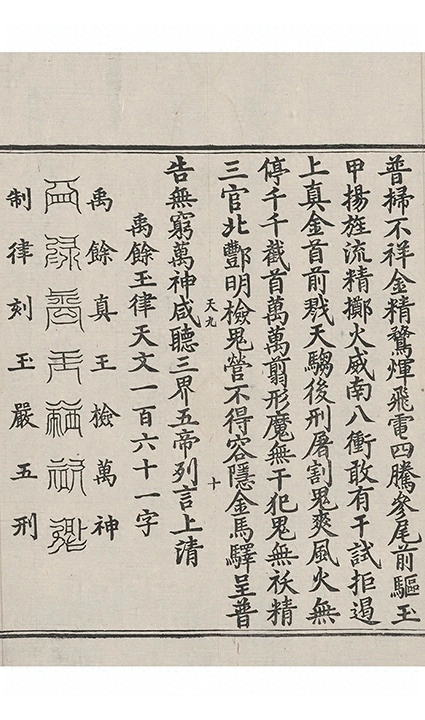 普掃不祥金精驚煇飛電四騰參尾前驅玉
甲揚旌流精擲火威南八衝敢有干試拒遏
上真金首前戮天騶後刑屠割鬼爽風火無
停千千截首萬萬翦形魔無干犯鬼無祅精
三官北酆明檢鬼營不得容隱金馬驛呈普
天九 十
告無窮萬神咸聽三界五帝列言上清
禹餘玉律天文一百六十一字
禹餘真王檢萬神
制律刻玉嚴五刑